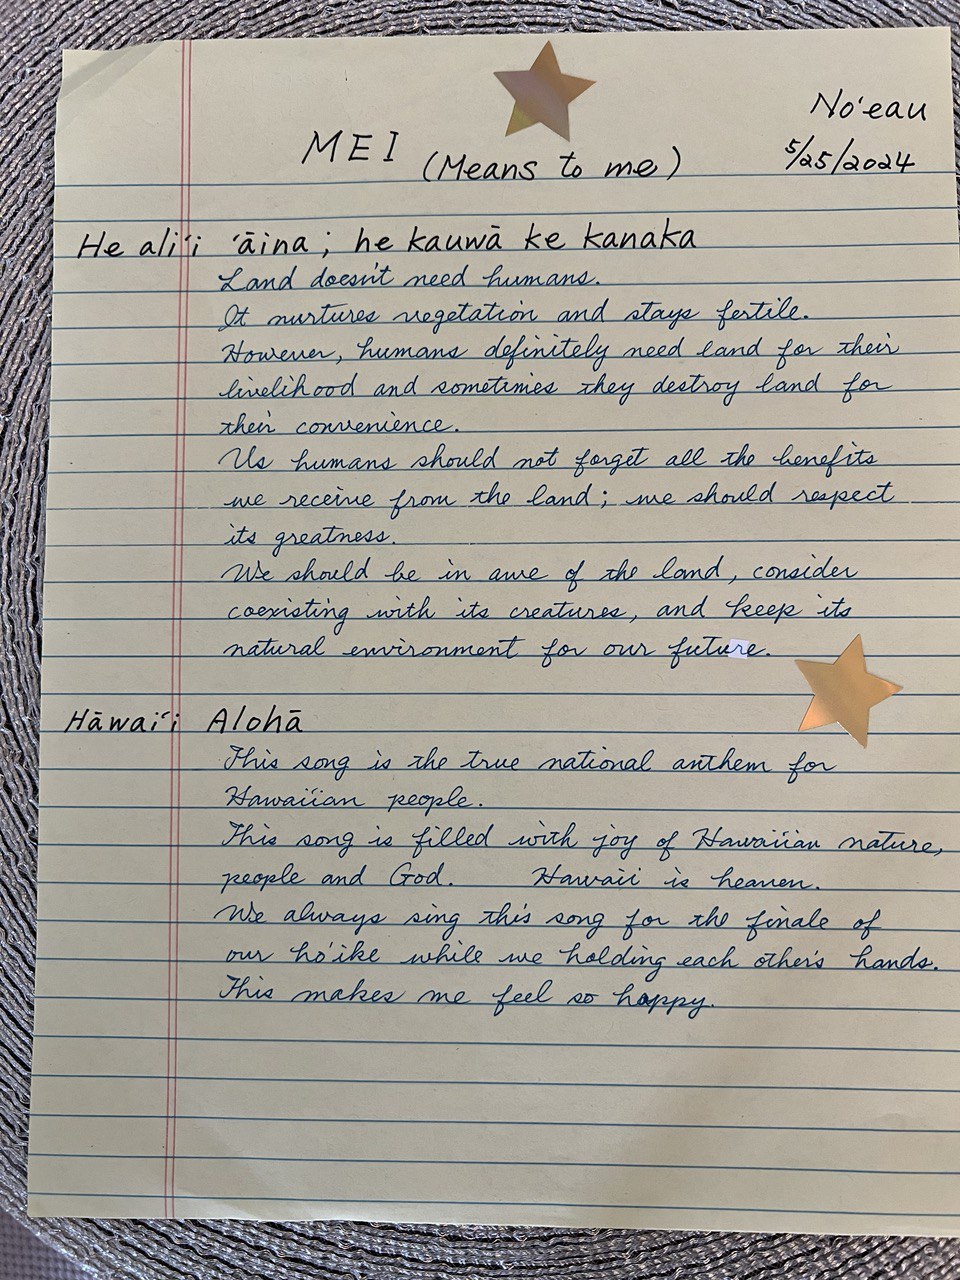 No'eau
MEI (Means to me) 5/25/2024
He ali'i 'āina; he kauwā ke kanaka
Land doesn't need humans.
It nurtures vegetation and stays fertile.
However, humans definitely need land for their
livelihood and sometimes they destroy land for
their convenience.
Us humans should not forget all the benefits
we receive from the land; we should respect
its greatness.
We should be in awe of the land, consider
coexisting with its creatures, and keep its
natural environment for our future.
Hāwai'i Alohā
This song is the true national anthem for
Hawai'ian people.
This song is filled with joy of Hawai'ian nature,
people and God. Hawaii is heaven.
We always sing this song for the finale of
our ho'ike while we holding each other's hands.
This makes me feel so happy.